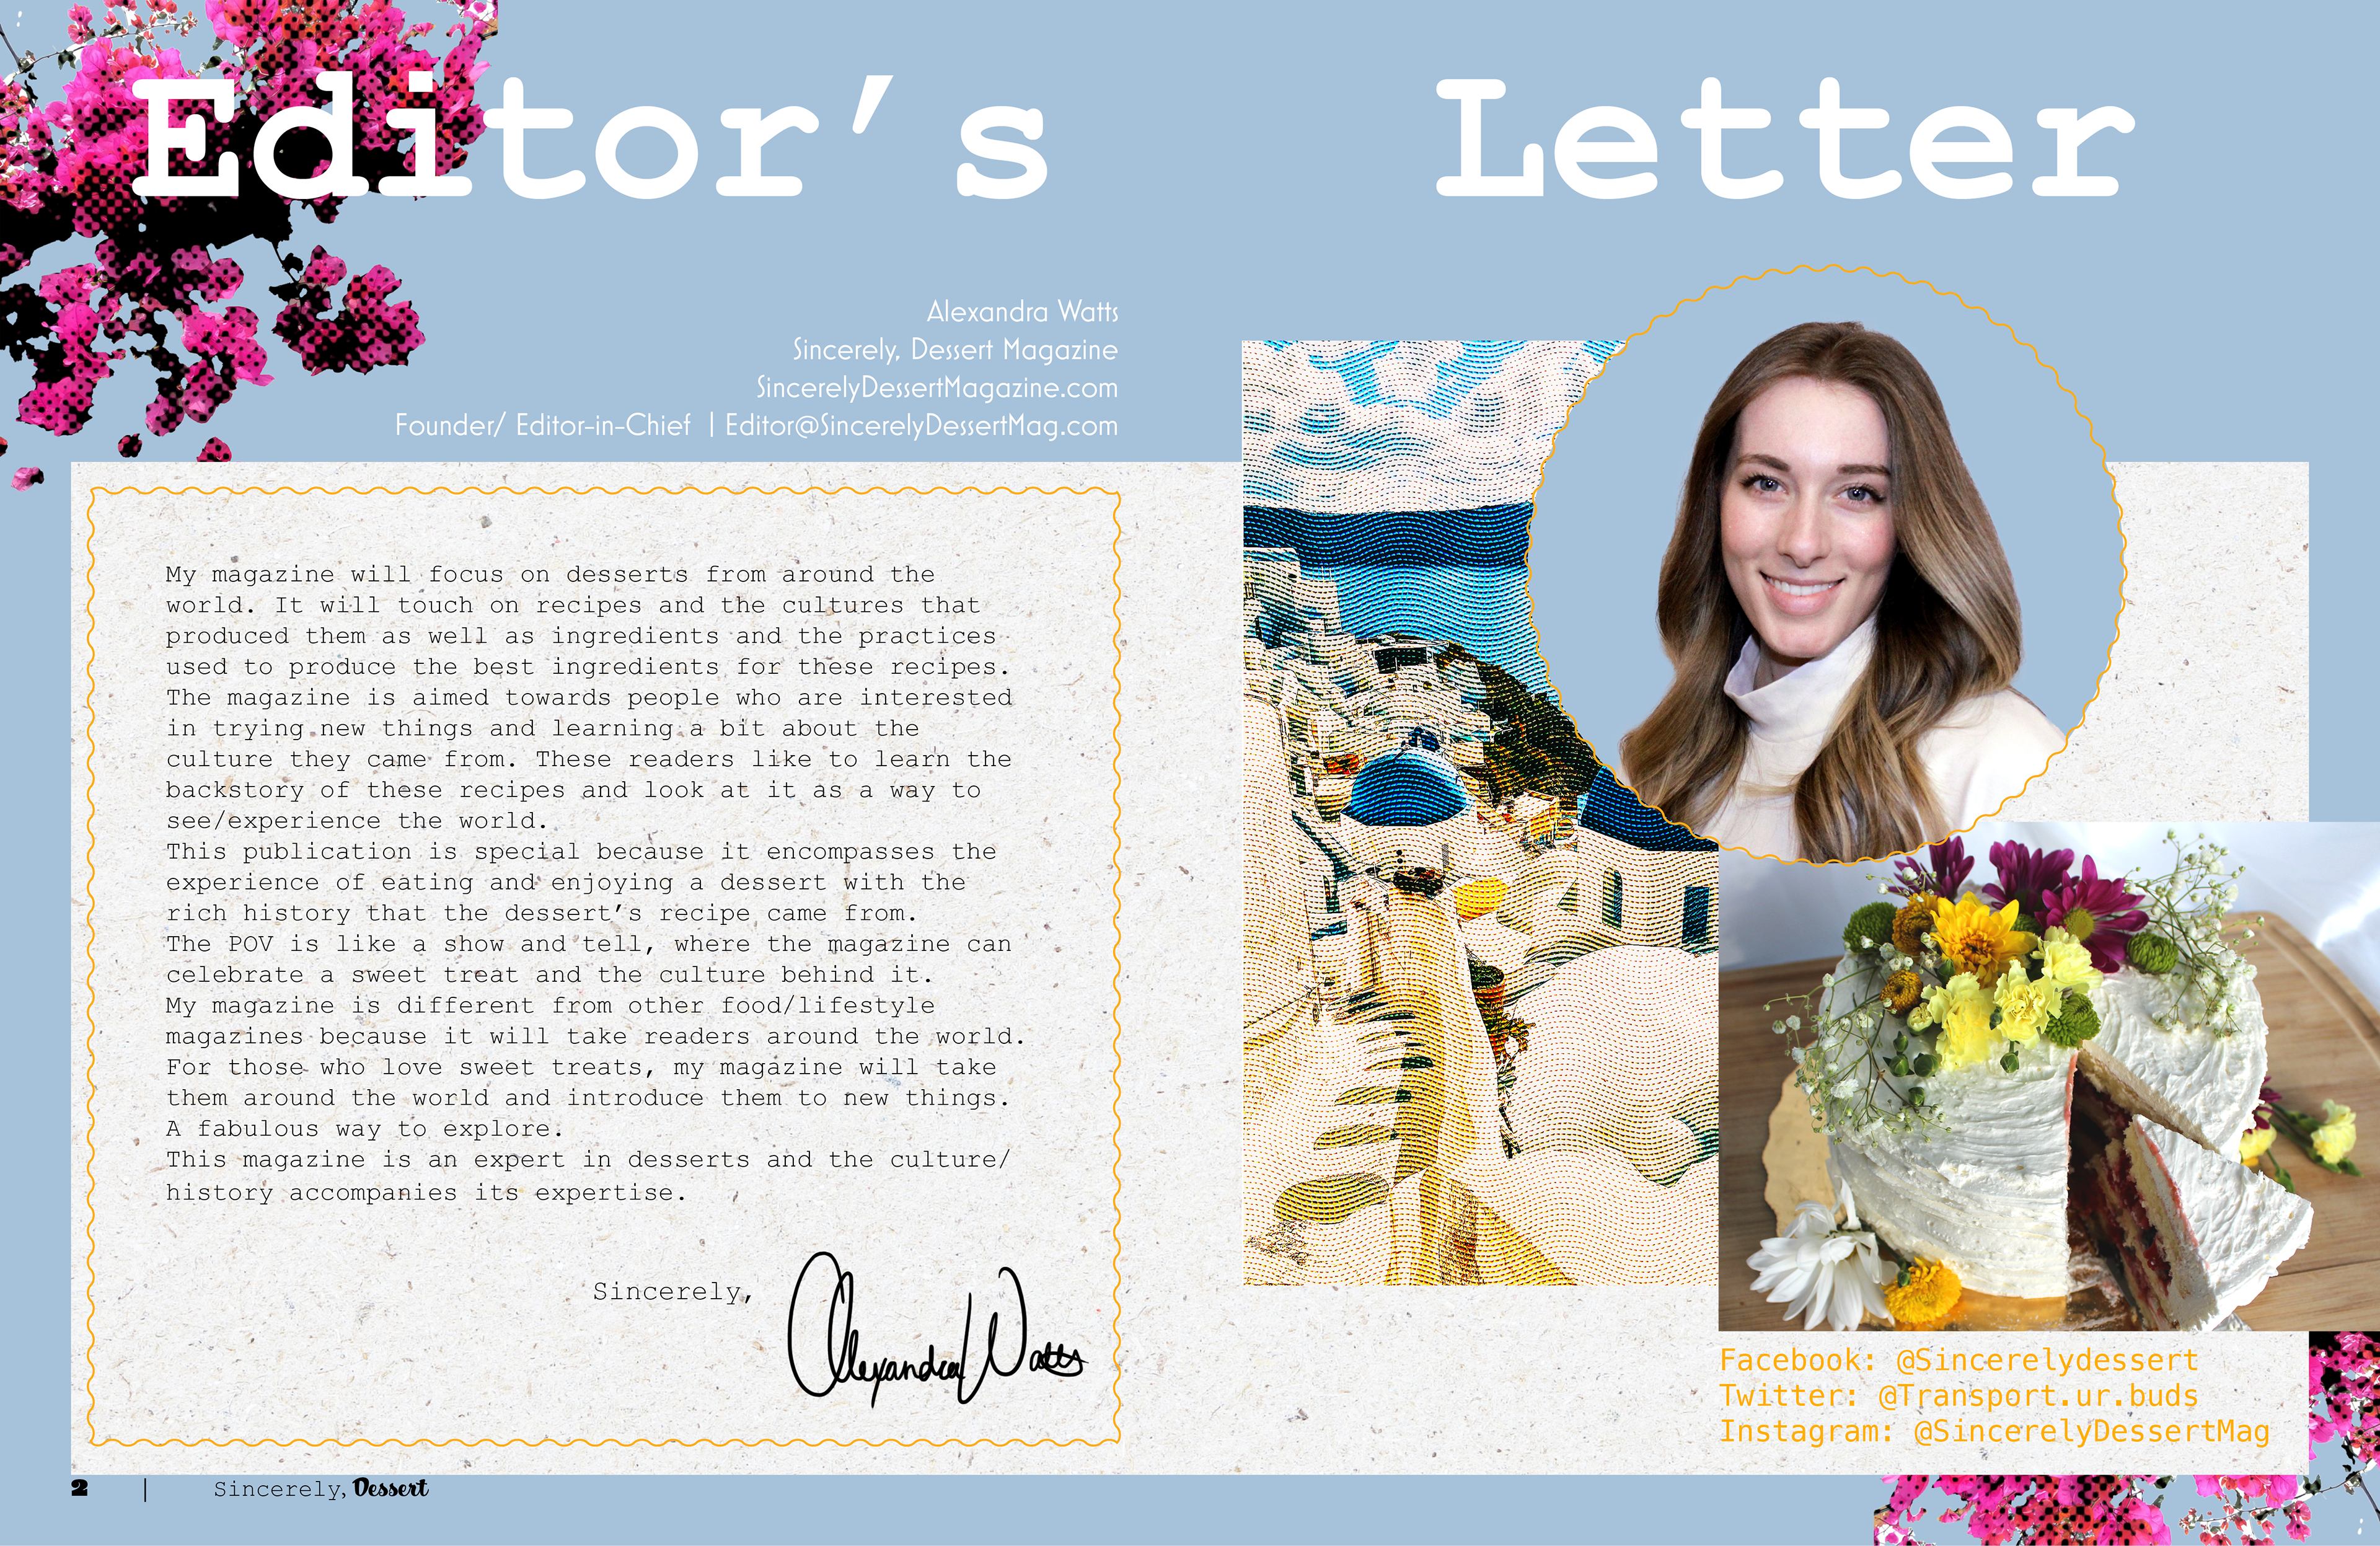 Editor's Letter
Alexandra Watts
Sincerely, Dessert Magazine
SincerelyDessertMagazine.com
Founder/ Editor-in-Chief | Editor@SincerelyDessertMag.com
My magazine will focus on desserts from around the
world. It will touch on recipes and the cultures that
produced them as well as ingredients and the practices
used to produce the best ingredients for these recipes.
The magazine is aimed towards people who are interested
in trying new things and learning a bit about the
culture they came from. These readers like to learn the
backstory of these recipes and look at it as a way to
see/experience the world.
This publication is special because it encompasses the
experience of eating and enjoying a dessert with the
rich history that the dessert’s recipe came from.
The POV is like a show and tell, where the magazine can
celebrate a sweet treat and the culture behind it.
My magazine is different from other food/lifestyle
magazines because it will take readers around the world.
For those who love sweet treats, my magazine will take
them around the world and introduce them to new things.
A fabulous way to explore.
This magazine is an expert in desserts and the culture/
history accompanies its expertise.
Sincerely,
Alexandra Watts
Facebook: @Sincerelydessert
Twitter: @Transport.ur.buds
Instagram: @SincerelyDessertMag
2 | Sincerely, Dessert